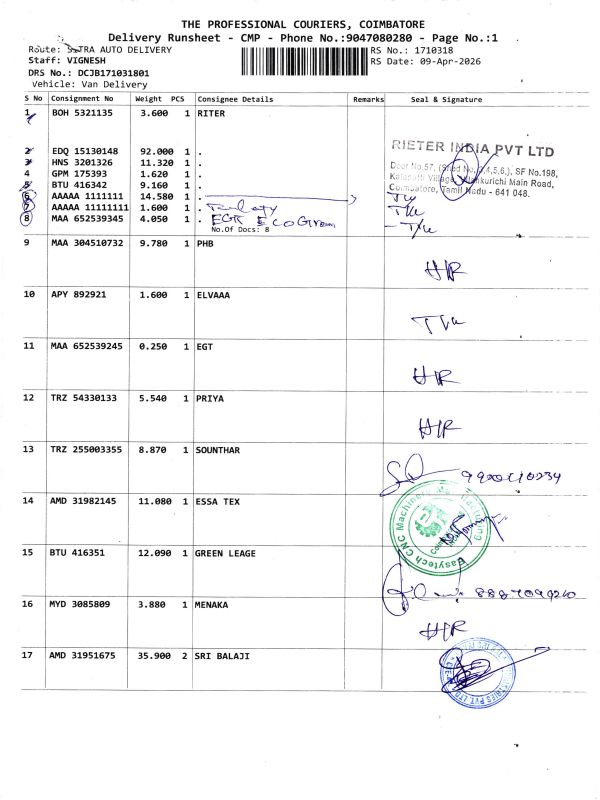 THE PROFESSIONAL COURIERS, COIMBATORE
Delivery Runsheet - CMP - Phone No.:9047080280 - Page No.:1
Route: SITRA AUTO DELIVERY
RS No.: 1710318
Staff: VIGNESH
RS Date: 09-Apr-2026
DRS No.: DCJB171031801
Vehicle: Van Delivery
S No Consignment No Weight PCS Consignee Details Remarks Seal & Signature
1 BOH 5321135 3.600 1 RITER
2 EDQ 15130148 92.000 1 .
3 HNS 3201326 11.320 1 .
4 GPM 175393 1.620 1 .
5 BTU 416342 9.160 1 .
6 AAAAA 1111111 14.580 1 .
7 AAAAA 11111111 1.600 1 .
8 MAA 652539345 4.050 1 . EGT EcoGreen
No.Of Docs: 8
RIETER INDIA PVT LTD
Door No.57, (Shed No.3,4,5,6,), SF No.198,
Kalapatti Village, Main Road,
Coimbatore, Tamil Nadu - 641 048.
9 MAA 304510732 9.780 1 PHB
H/R
10 APY 892921 1.600 1 ELVAAA
11 MAA 652539245 0.250 1 EGT
H/R
12 TRZ 54330133 5.540 1 PRIYA
H/R
13 TRZ 255003355 8.870 1 SOUNTHAR
14 AMD 31982145 11.080 1 ESSA TEX
Easytech CNC Machinery Manufacturing
15 BTU 416351 12.090 1 GREEN LEAGE
16 MYD 3085809 3.880 1 MENAKA
H/R
17 AMD 31951675 35.900 2 SRI BALAJI